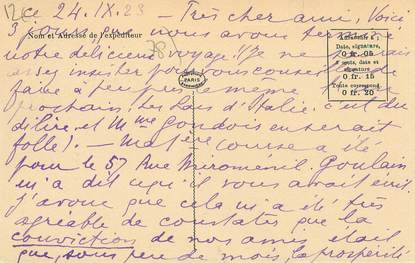 24.IX.23 — Très cher ami, Voici
3 jours que nous avons terminé
Nom et Adresse de l'expéditeur
notre délicieux voyage. (Je ne
insister pour vous
faire à peu près même
prochain. Les Lacs d'Italie, c'est du
délire, et Mme Gondois en serait
folle). — Ma 1ère course a été
pour le 57 Rue Miromésnil. Goulain
m'a dit qu'il vous avait écrit.
J'avoue que cela m'a été très
agréable de constater que la
conviction de nos amis était
que, sous peu de mois, la prospérité
PARIS
Date, signature,
0 fr. 05
5 mots, date et
signature
0 fr. 15
Toute correspond.
0 fr. 20